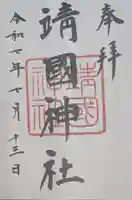 奉拝
靖國神社
令和七年七月十三日